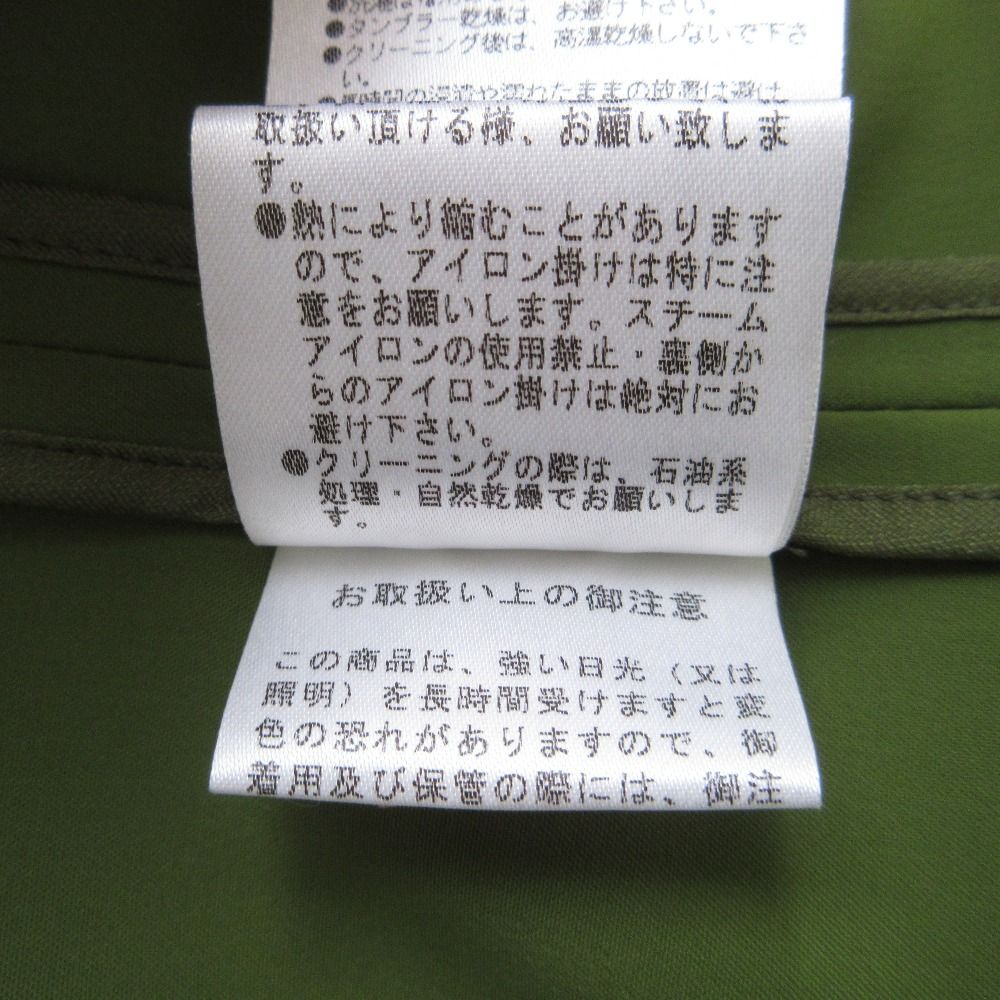 ●タンブラー乾燥は、お避け下さい。
●クリーニング後は、高温乾燥しないで下さ
い。
取扱い頂ける様、お願い致しま
す。
●熱により縮むことがあります
ので、アイロン掛けは特に注
意をお願いします。スチーム
アイロンの使用禁止・裏側か
らのアイロン掛けは絶対にお
避け下さい。
●クリーニングの際は、石油系
処理・自然乾燥でお願いしま
す。
お取扱い上の御注意
この商品は、強い日光（又は
照明）を長時間受けますと変
色の恐れがありますので、御
着用及び保管の際には、御注